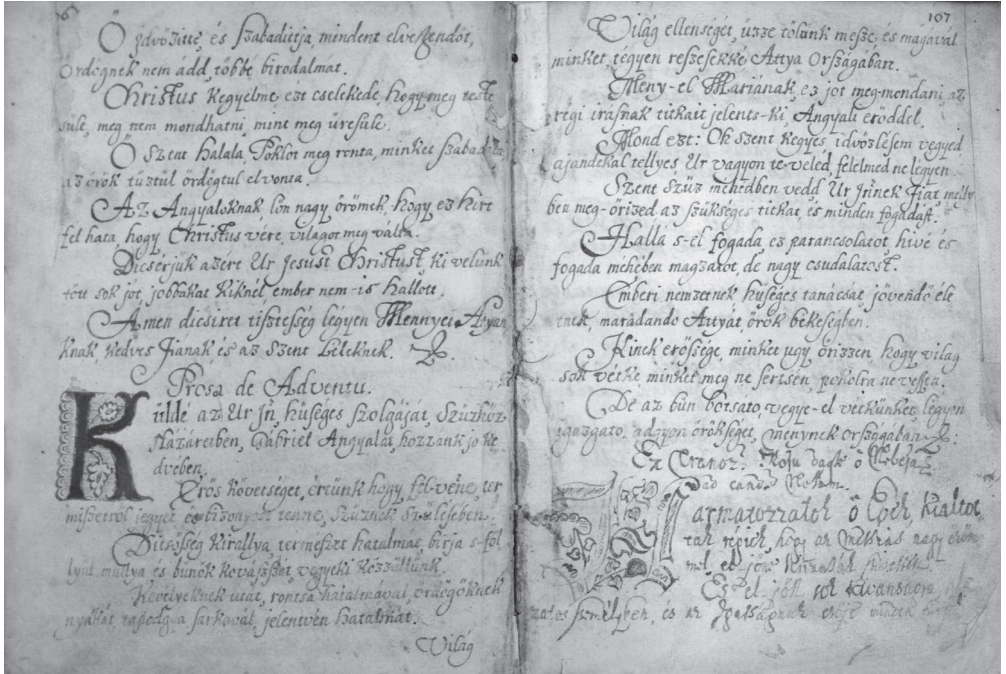 6
Ö jdvözitté, és szabaditja, mindent elveszendőt,
ördögnek nem ádd többé birodalmat.
Christus kegyelme, ezt cselekedé, hogy meg teste
sülé, meg nem mondhatni, mint meg üresüle.
Ö szent halala, Poklot meg rontá, minket szabad
az örök tüztül ördögtul elvoná.
Az Angyaloknak lőn nagy örömek, hogy ez hirt
fel hata, hogy Christus vére, világot meg váltá.
Dicsérjük azért Ur Jesust Christust, ki velünk
tött sok jot, jobbakat kiknél ember nem-is hallott.
Amen dicsiret tisztesség légyen Mennyei Atyan
knak, kedves Fiának és az szent Léleknek.
Prosa de Adventu.
Küldé az Ur Jn, hüséges szolgáját, Szüzhöz
Názáretben, Gabriel Angyalát, hozzank jo ke
dvében.
Erös követséget, örtünk hogy fel-véne, ter
mészetröl jegyet és bizonyost tenne, Szüznek szülésében.
Ditsöség Királlya, termeszet hatalmát, birja s-föl
lyul mullya és bünök kovászszát, vegyeki közzüllünk.
Kevélyeknek utát, rontsa hatalmával, ördögöknek
nyakát, tapodgya sarkával, jelentvén hatalmát.
Világ
107
Világ ellenségét, üzze tölünk mesze, és magával
minket, tégyen reszesekké Attya Országában.
Meny-el Mariának, ez jot meg-mondani, az
régi irásnak titkait jelents-ki, Angyali eröddel.
Mond ezt: Oh szent kegyes, idvözlésem vegyed
ajándékal tellyes Ur vagyon te-veled, felelmed ne légyen
Szent szüz méhedben vedd, Ur Jsinek Fiát mely
ben meg-örized az szükséges titkat, és minden fogadást.
Hallá s-el fogada, ez parancsolatot, hivé és
fogada méhében magzatot, de nagy csudalatost.
Emberi nemzetnek hüséges tanácsát, jövendö éle
tnek, maradando Attyát, örök békeségben.
Kinek erössége, minket ugy örizzen, hogy világ
sok vétke minket meg ne sértsen, pokolra ne vessen.
De az bün botsato, vegye-el vétkünket, légyen
igazgato, adgyon örökséget, menynek országában.
ad Notam
armatozzatok ö Egek, kialtot
tak regich, hogy az Messias nagy öröm
mel el jöne
Es el jött